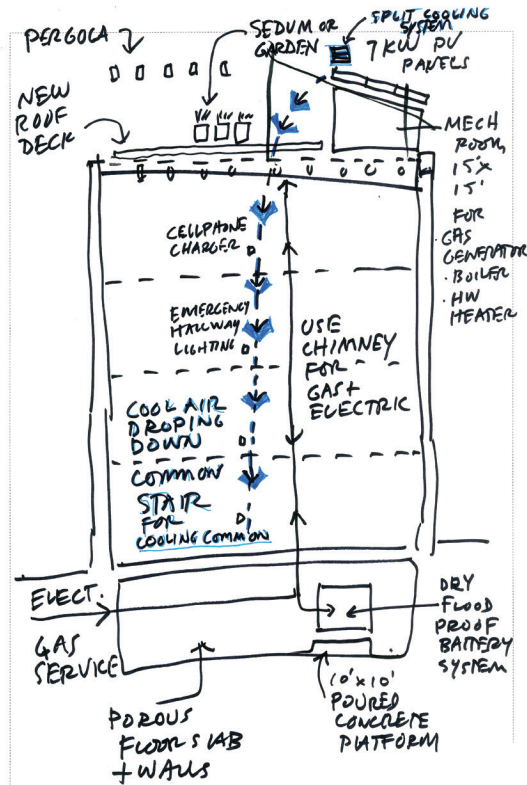 PERGOLA
SEDUM OR
GARDEN
SPLIT COOLING
SYSTEM
7 KW PV
PANELS
NEW
ROOF
DECK
MECH
ROOM
15'X
15'
FOR
GAS
GENERATOR
• BOILER
• HW
HEATER
CELLPHONE
CHARGER
EMERGENCY
HALLWAY
LIGHTING
USE
CHIMNEY
FOR
GAS+
ELECTRIC
COOL AIR
DROPING
DOWN
COMMON
STAIR
FOR
COOLING COMMON
ELECT.
GAS
SERVICE
DRY
FLOOD
PROOF
BATTERY
SYSTEM
POROUS
FLOOR SLAB
+ WALLS
10'X10'
POURED
CONCRETE
PLATFORM